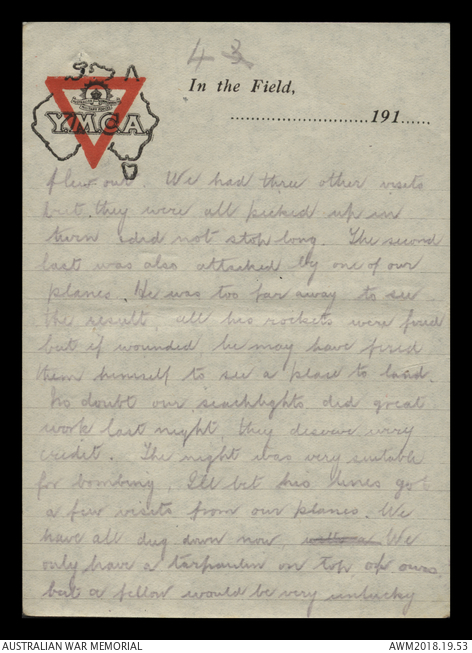 4 3
In the Field,
YMCA
191
flew our. We had three other visits
but they were all picked up in
turn & did not stop long. The second
last was also attached by one of our
planes. He was too far away to see
the result, all his rockets were fired
but if wounded he may have fired
them himself to see a place to land.
No doubt our seachlights did great
work last night, they deserve every
credit. The night was very suitable
for bombing, I'll bet his lines got
a few visits from our planes. We
have all dug down now We
only have a tarpaulin on top of ours
but a fellow would be very unlucky
AUSTRALIAN WAR MEMORIAL
AWM2018.19.53